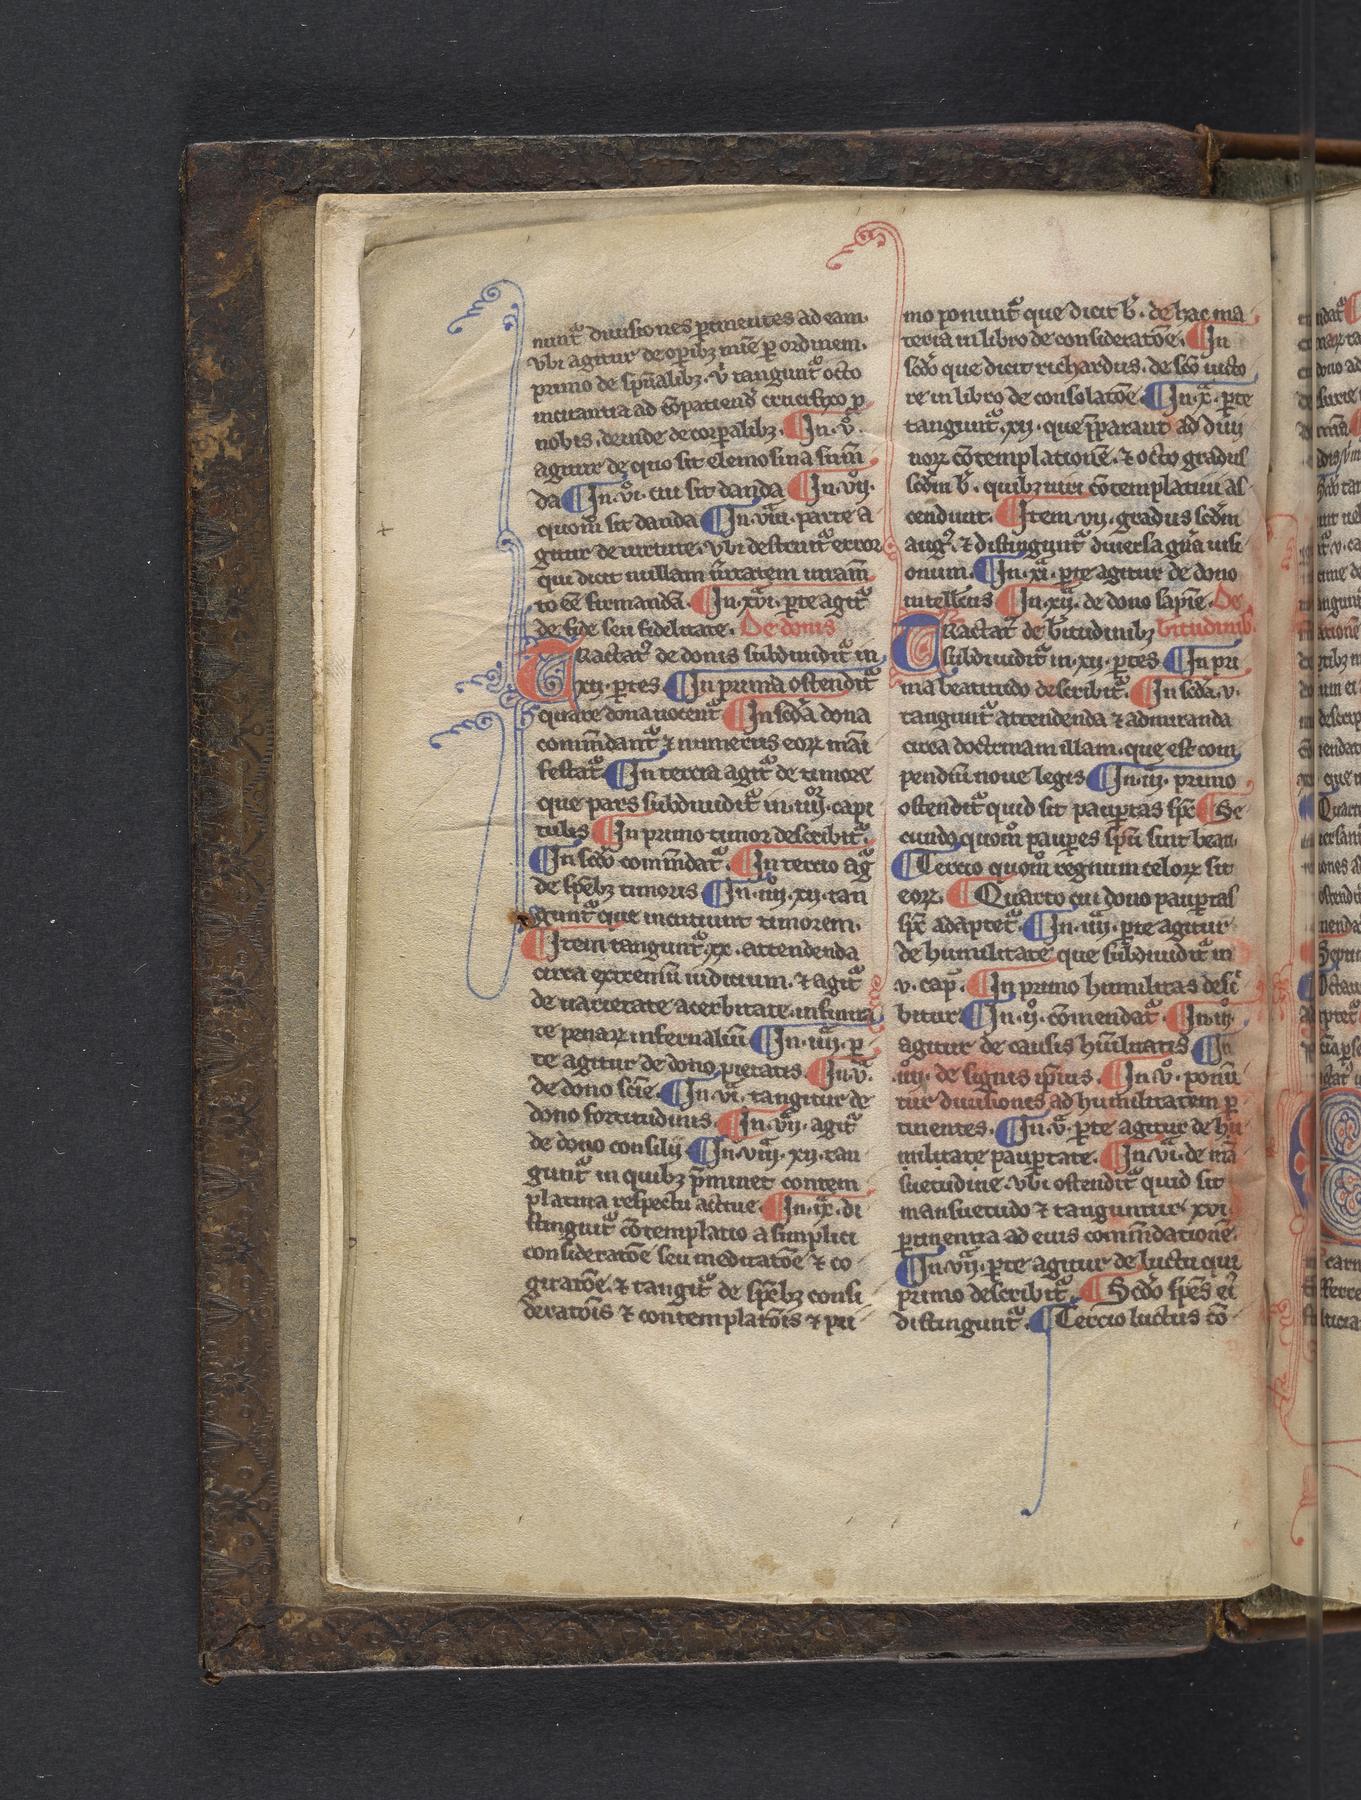 nunt᷑ diuisiones ꝑtinentes ad eam.
vbi agitur de oꝑibꝫ mīe ꝑ ordinem.
primo de sp̄ualibꝫ. v̉ tangunt᷑ octo
incitantia ad cōpatiend̄ crucifixo ꝓ
nobis. deinde de corꝑalibꝫ. ¶ In .v̊.
agitur de quo sit elemosina facien
da ¶ In .vi̊. cui sit danda ¶ In .vij.
quom̊ sit danda ¶ In .viii. parte a
gitur de uirtute. vbi destruit᷑ error
qui dicit nullam ueritatem iuram̄
to ēē firmandā. ¶ In .xvi. ꝑte agit᷑
de fide seu fidelitate. De donis
Tractatꝰ de donis subdiuidit᷑ in
.xij. ꝑtes ¶ In prima ostendit᷑
quare dona uocent᷑ ¶ In sc̄da dona
com̄dant᷑ ⁊ numerus eoꝝ mani
festat᷑. ¶ In tercia agit᷑ de timore
que pars subdiuidit᷑ in .iiij. capi
tulis ¶ In primo timor describit᷑.
¶ In scd̊o com̄dat᷑. ¶ In tercio ag᷑
de sp̄ēbꝫ timoris ¶ In .iiij. xij. tan
gunt᷑ que incutiunt timorem.
¶ Item tangunt᷑ .xx. attendenda
circa extremū iudicium. ⁊ agit᷑
de uarietate acerbitate. infinita
te penaꝝ infernaliū ¶ In .iiij. ꝑ
te agitur de dono pietatis. ¶ In .v.
de dono scīe. ¶ In .vi. tangitur de
dono fortitudinis. ¶ In .vij. agit᷑
de dono consilij ¶ In .viij. xij. tan
gunt᷑ in quibꝫ p̄minet contem
platiua respectu actiue. ¶ In .ix. di
stinguit᷑ cōtemplatio a simplici
consideratōe seu meditatōe ⁊ co
gitatōe. ⁊ tangit᷑ de sp̄ēbꝫ consi
deratōis ⁊ contemplatōis ⁊ pri
mo ponunt᷑ que dicit b̄. de hac ma
teria in libro de consideratōe. ¶ In
scd̊o que dicit richardus. de sc̄o uicto
re in libro de consolatōe ¶ In .x. ꝑte
tangunt᷑ .xij. que p̄parant ad diui
noꝝ cōtemplationē. ⁊ octo gradus
scd̄m b̄. quibꝫ uiri cōtemplatiui as
cendunt. ¶ Item .vij. gradus scd̄m
augꝰ. ⁊ distingunt᷑ diuersa gn̄a uisi
onum. ¶ In .xi. ꝑte agitur de dono
intellectus ¶ In .xij. de dono sapīe. De
b̄titudinibꝫ.
Tractatꝰ de b̄titudinibꝫ
subdiuidit᷑ in .xij. ꝑtes ¶ In pri
ma beatitudo describit᷑. ¶ In sc̄da .v.
tangunt᷑ attendenda ⁊ admiranda
circa doctrinam illam. que est com
pendiū noue legis ¶ In .iij. primo
ostendit᷑ quid sit pauꝑtas sp̄c ¶ Se
cundo quom̊ pauꝑes sp̄u sint beati.
¶ Tercio quom̊ regnum celoꝝ sit
eoꝝ. ¶ Quarto cui dono pauꝑtas
sp̄c adaptet᷑. ¶ In .iiij. ꝑte agitur
de humilitate que subdiuidit᷑ in
.v. cap̄. ¶ In primo humilitas desc̄
bitur ¶ In .ij̊. cōmendat᷑. ¶ In .iij̊.
agitur de causis hūilitatis ¶ In
.iiij̊. de signis ip̄ius. ¶ In .v̊. ponū
tur diuisiones ad humilitatem ꝑ
tinentes. ¶ In .v. ꝑte agitur de hu
militate pauꝑtate. ¶ In .vi. de mā
suetudine. vbi ostendit᷑ quid sit
mansuetudo ⁊ tanguntur .xvi.
ꝑtinentia ad eius com̄dationē.
¶ In .vij. ꝑte agitur de luctu qui
primo describit᷑. ¶ Scd̊o sp̄ēs ei᷒
distingunt᷑. ¶ Tercio luctus cō